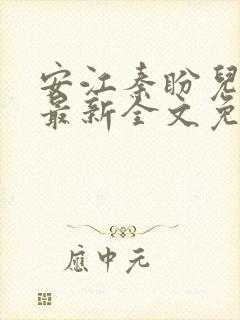 安江秦盼兒
最新全文免
應中元